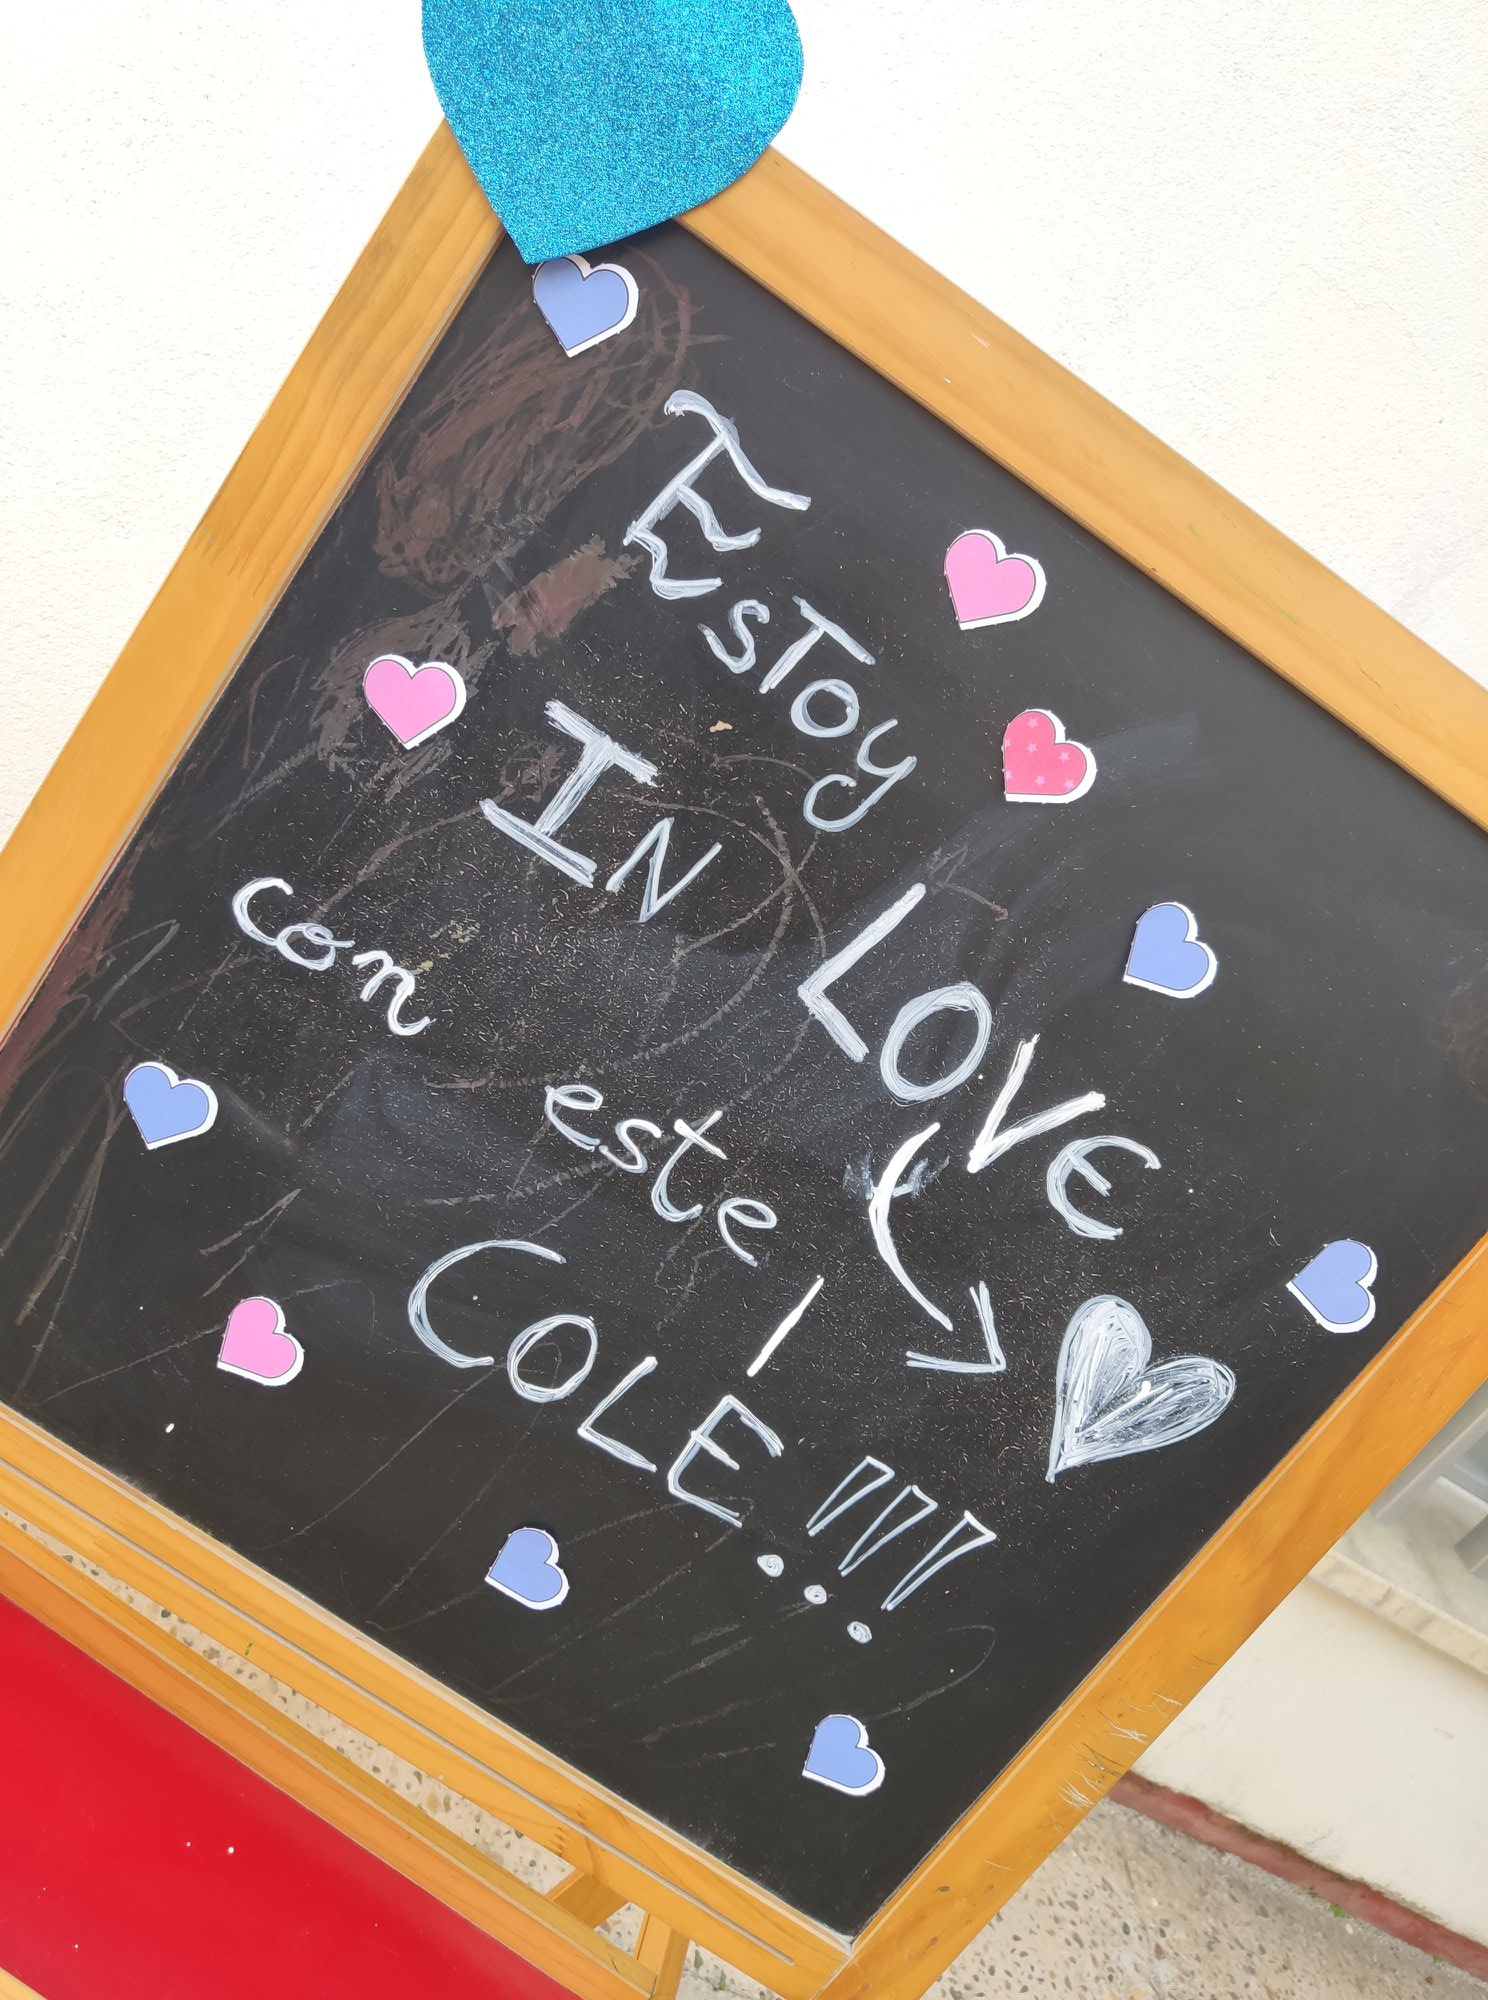 Estoy
IN LOVE
con este
COLE!!!